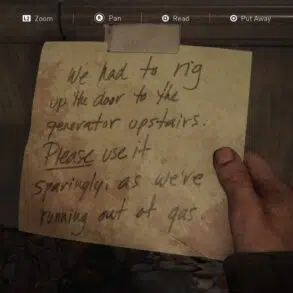 L2 Zoom Pan Read Put Away
We had to rig
up the door to the
generator upstairs.
Please use it
sparingly, as we're
running out of gas.